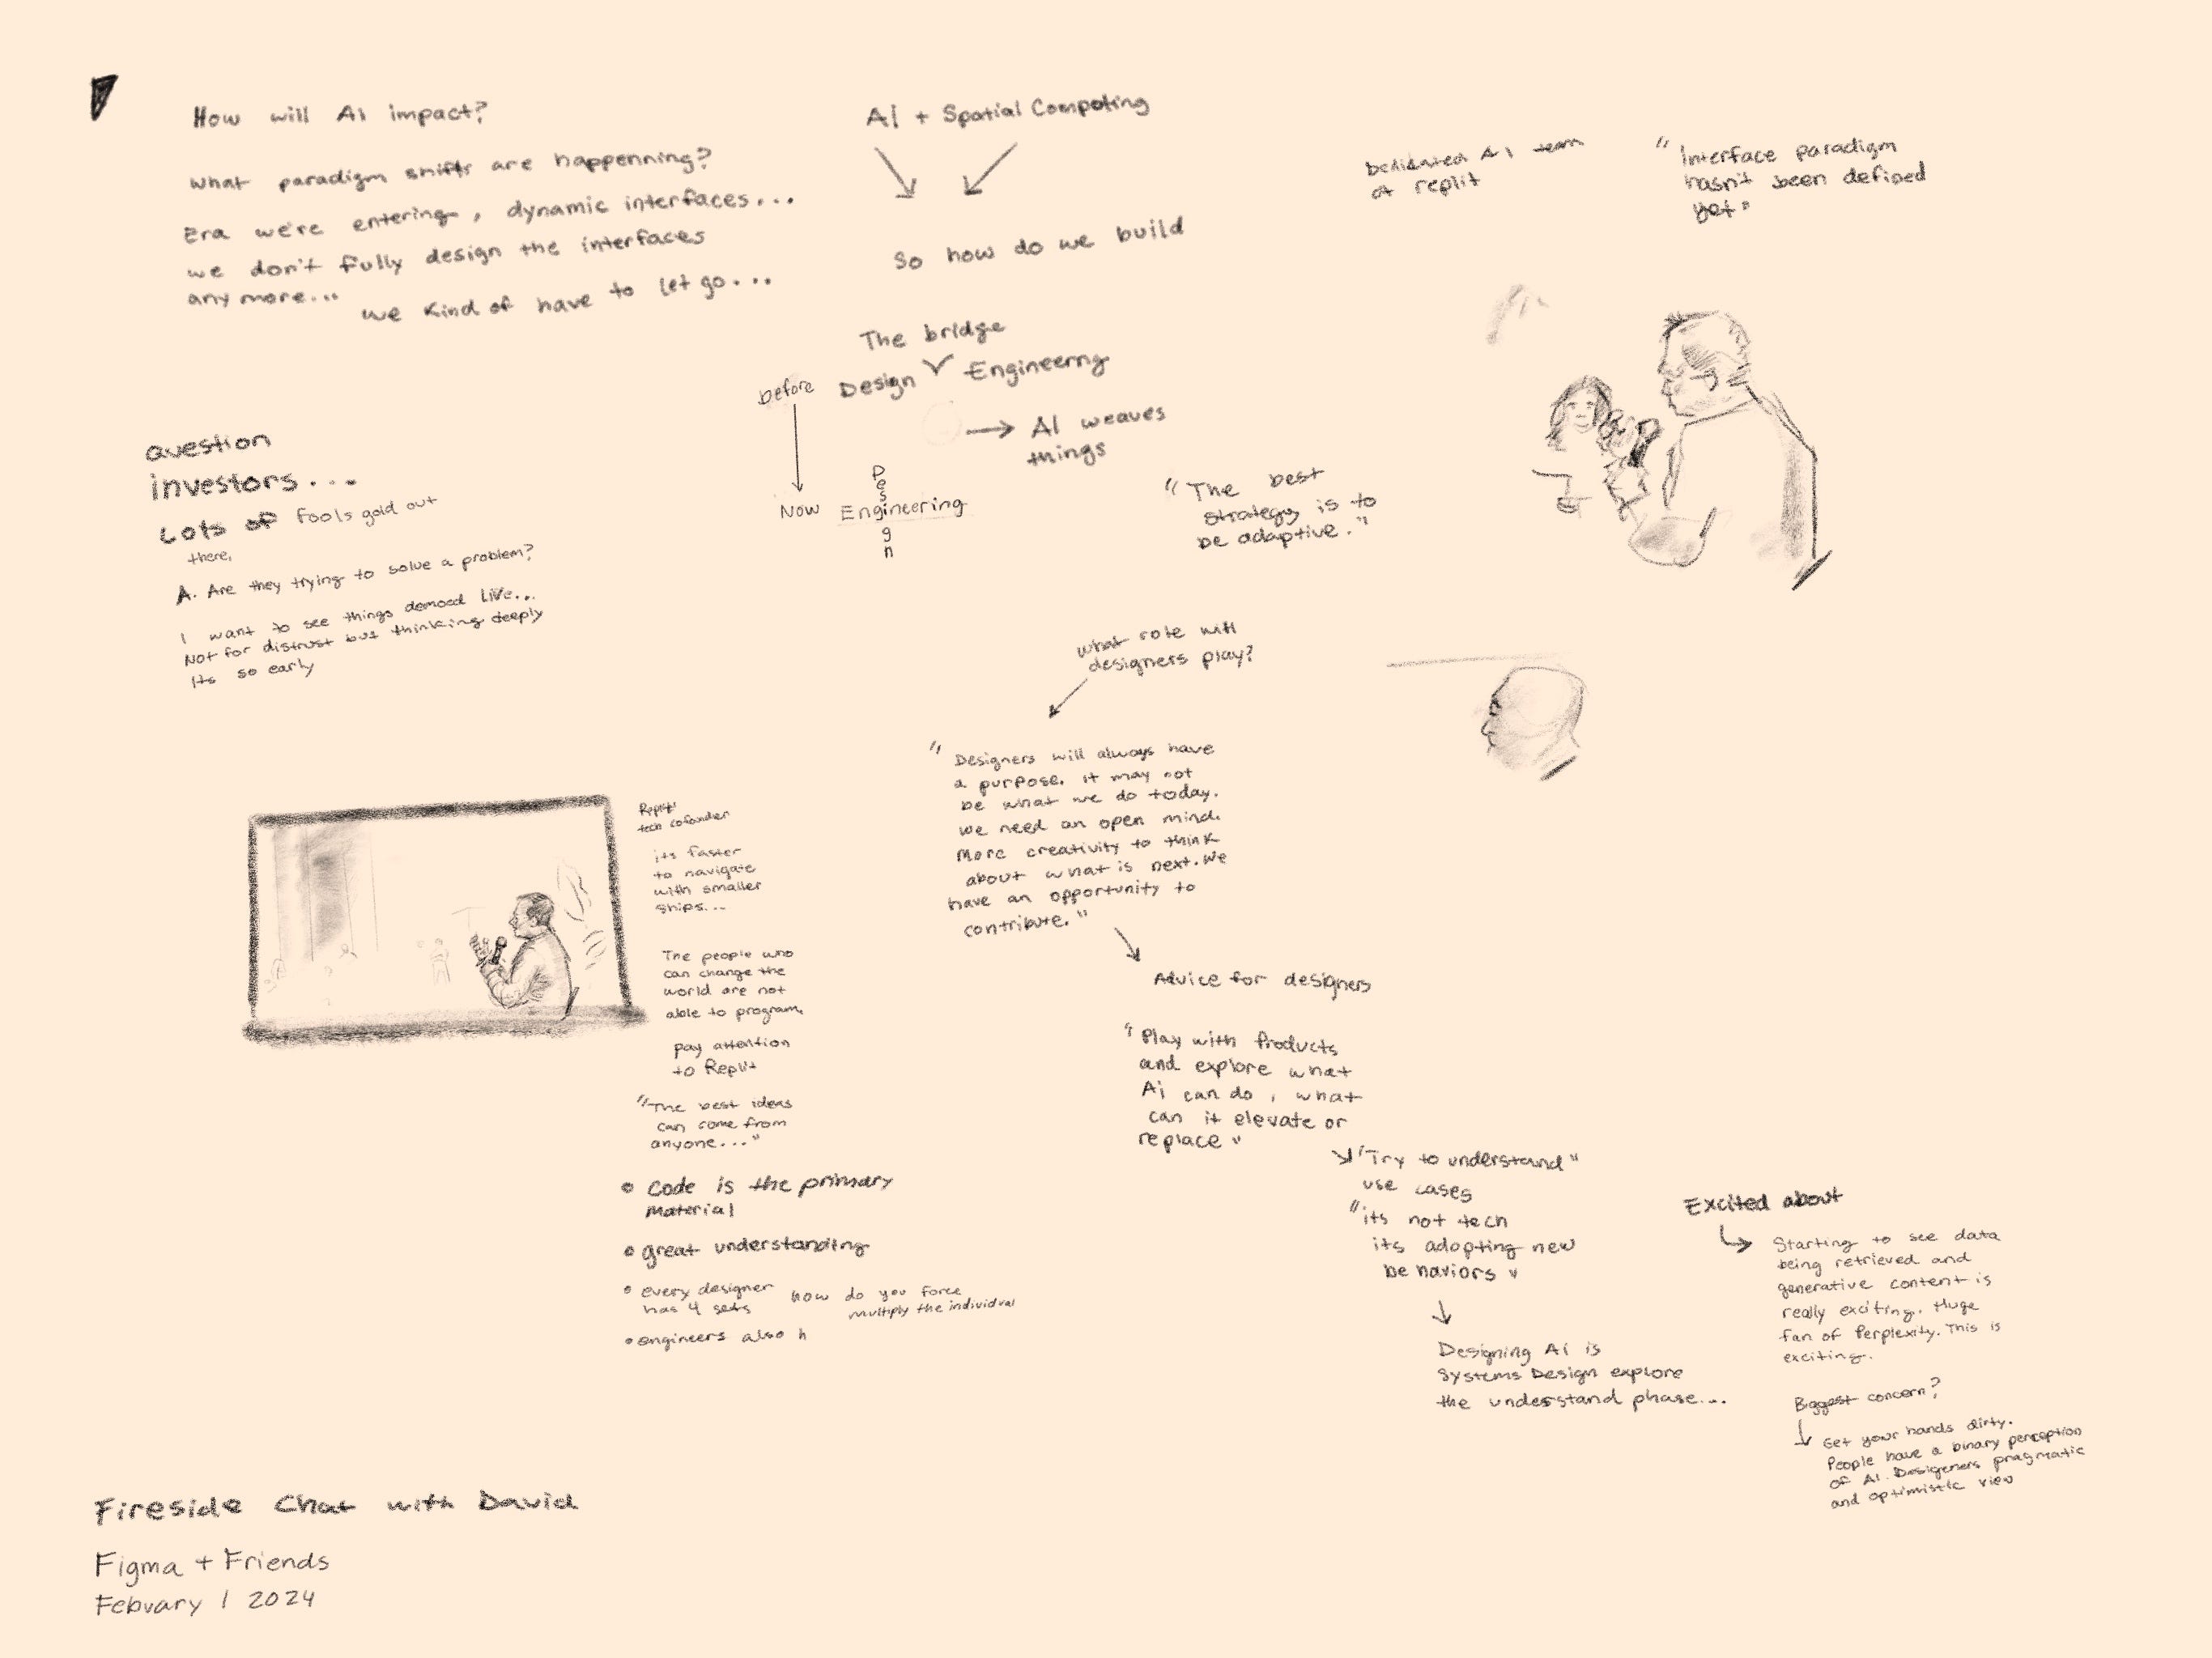 How will Ai impact?
what paradigm shifts are happenning?
Era we're entering, dynamic interfaces...
we don't fully design the interfaces
any more...
we kind of have to let go...
question
investors...
Lots of fools gold out
there,
A. Are they trying to solve a problem?
I want to see things demoed live...
Not for distrust but thinking deeply
its so early
AI + Spatial Computing
So how do we build
The bridge
before Design Engineerng
AI weaves
things
Now Engineering
Design
"The best
strategy is to
be adaptive."
AI team
at replit
"Interface paradigm
hasn't been defined
yet"
what role will
designers play?
"Designers will always have
a purpose. it may not
be what we do today.
we need an open mind.
More creativity to think
about what is next. We
have an opportunity to
contribute."
Advice for designers
"Play with products
and explore what
Ai can do, what
can it elevate or
replace"
"Try to understand"
use cases
"its not tech
its adopting new
behaviors"
Designing Ai is
Systems Design explore
the understand phase...
Replit
tech cofounder
its faster
to navigate
with smaller
ships...
The people who
can change the
world are not
able to program.
pay attention
to Replit
"The best ideas
can come from
anyone..."
• code is the primary
material
• great understanding
• every designer
has 4 sets
how do you force
multiply the individual
• engineers also h
Excited about
Starting to see data
being retrieved and
generative content is
really exciting. Huge
fan of Perplexity. This is
exciting.
Biggest concern?
Get your hands dirty.
People have a binary perception
of AI. Desigeners pragmatic
and optimistic view
Fireside Chat with David
Figma + Friends
Febuary 1 2024